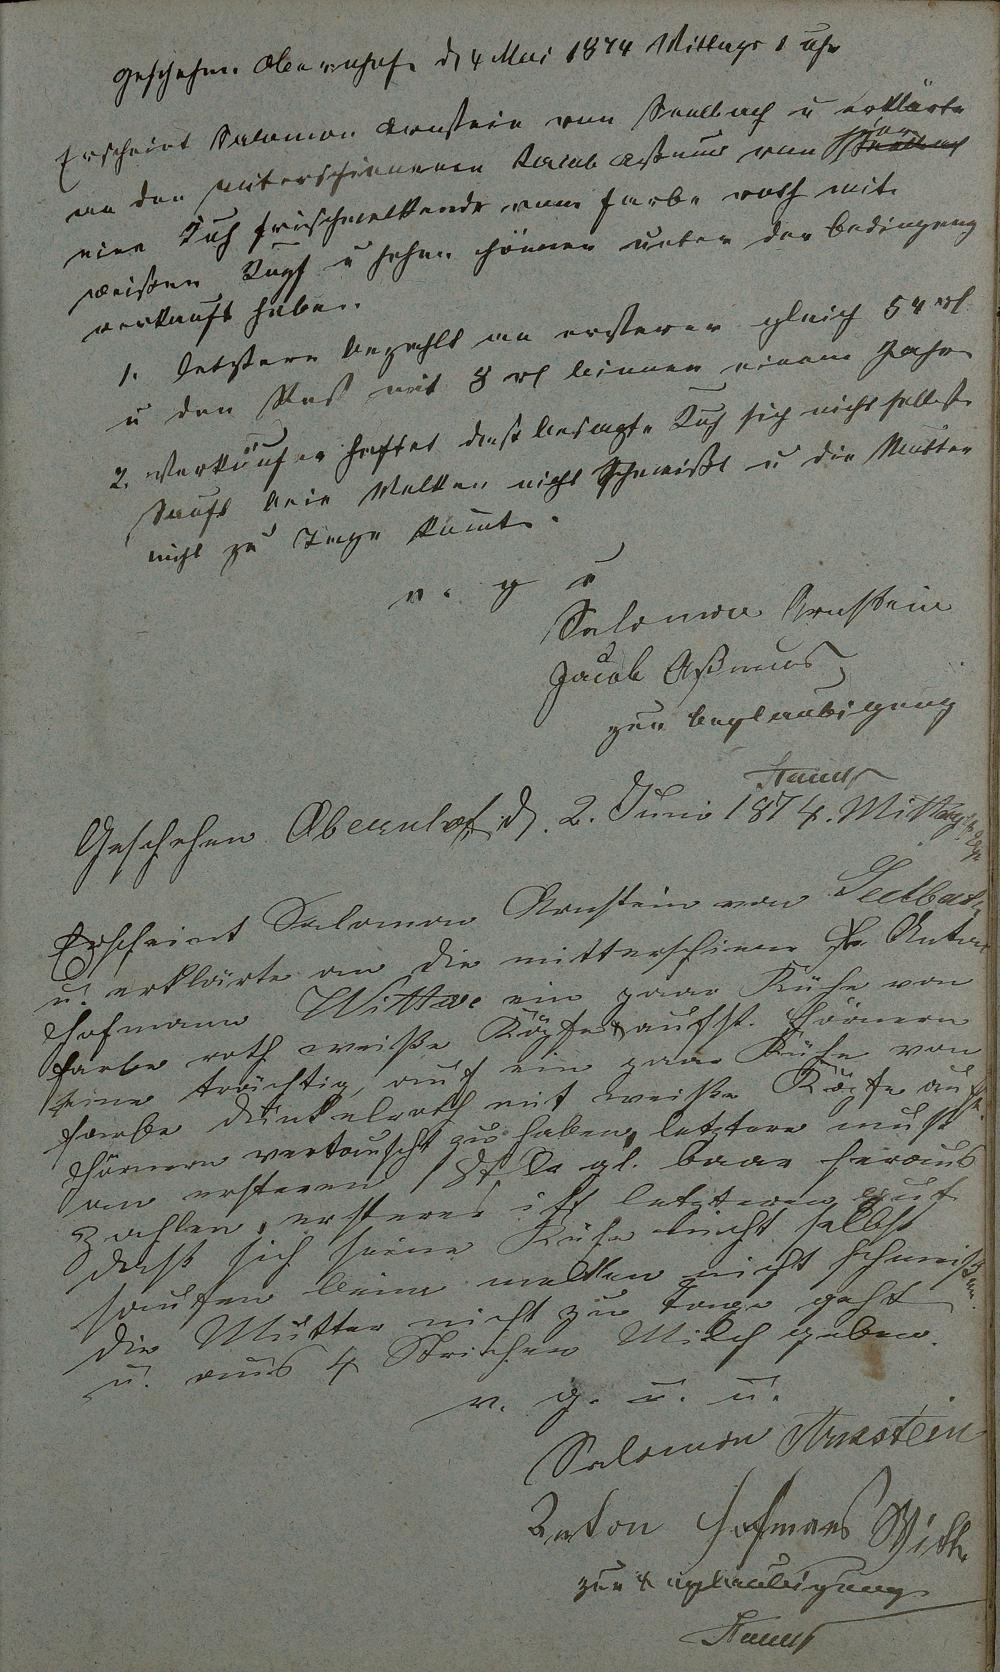 Geschehen Obernhof d 4 Mai 1874 Mittags 1 uhr
Erscheint Salomon Arnstein von Seelbach u erklärte
an den miterschinenen Jacob Aßmus von hier
eine Kuh frischmelkende vom farbe roth mit
weißen Kopf u hohen Hörner unter der bedingung
verkauft haben.
1. letztere bezahlt an ersterer gleich 54 rl
u den Rest mit 8 rl binnen einem Jahr
2. Verkäufer haftet daß besagte Kuh sich nicht selbst
Sauft beim Melken nicht Schmeißt u die Mutter
nicht zu Tage kommt.
v. g u
Salomon Arnstein
Jacob Aßmus
zur beglaubigung
Geschehen Obernhof, d. 2. Juni 1874. Mittags
Erscheint Salomon Arnstein von Seelbach
u. erklärte an die mitterschinen Fr. Anton
Hofmann Wittwe ein paar Kühe von
farbe roth weiße Köpfe aufst. Hörnern
eine trächtig, auf ein paar Kühe von
farbe dunkelroth mit weiße Köpfe aufst.
Hörnern vertauscht zu haben, letztere muß
an ersteren gl. baar heraus
zahlen, ersterer letzteren gut
daß sich seine Kühe nicht selbst
saufen beim melken nicht schmeißen
die Mutter nicht zu Tage geht
u. aus 4 Strichen Milch geben.
v. g. u. u.
Salomon Arnstein
Anton Hofmans Wittb.
zur beglaubigung